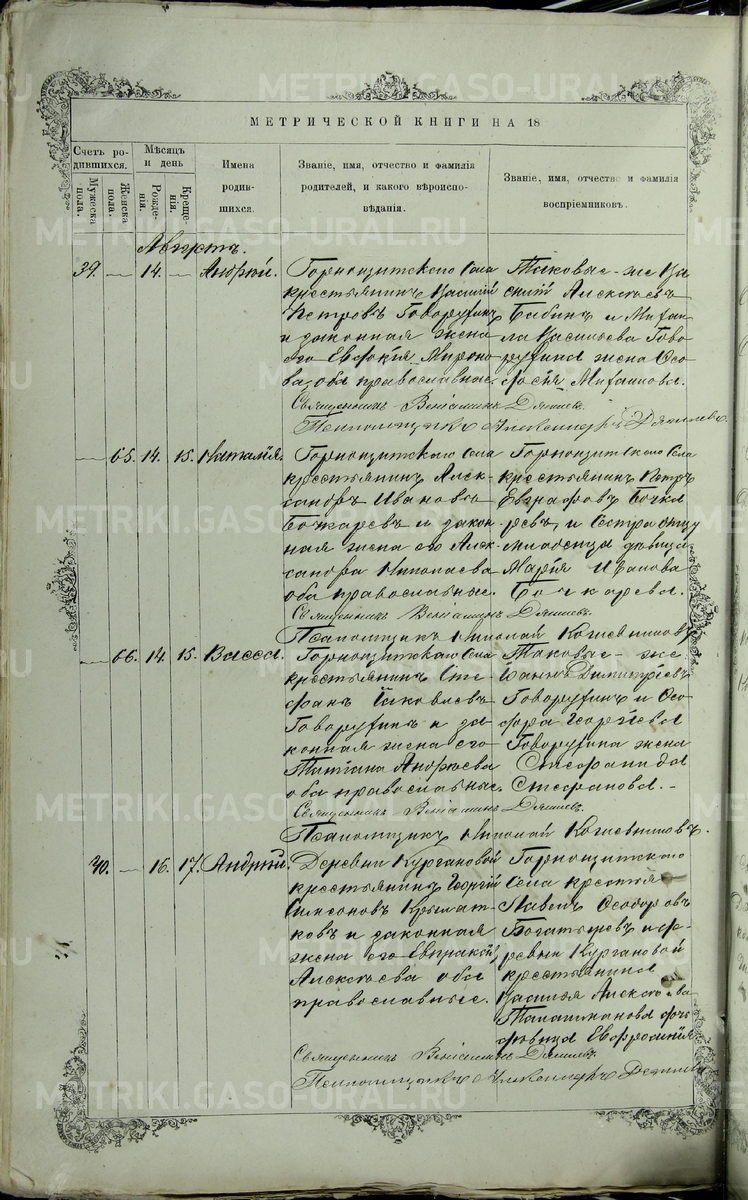 МЕТРИЧЕСКОЙ КНИГИ НА 18
Счетъ ро-
дившихся.
Мужеска
пола.
Женска
пола.
Мѣсяцъ
и день
Рожде-
нія.
Креще-
нія.
Имена
родив-
шихся.
Званіе, имя, отчество и фамилія
родителей, и какого вѣроиспо-
вѣданія.
Званіе, имя, отчество и фамилія
воспріемниковъ.
Августъ.
39. — 14. — Андрей.
Горнощитскаго Села
крестьянинъ Василій
Петровъ Говорухинъ
и законная жена
его Евдокія Мироно
ва, оба православные.
Таковые-же Ва
силій Алексѣевъ
Бабинъ и Михаи
ла Васильева Гово
рухина жена Ѳео
досья Михаилова.
Священникъ Веніаминъ
Псаломщикъ Александръ
— 65. 14. 15. Наталія.
Горнощитскаго Села
крестьянинъ Алек
сандръ Ивановъ
Бочкаревъ и закон
ная жена его Алек
сандра Николаева
оба православные.
Горнощитскаго Села
крестьянинъ Петръ
Евграфовъ Бочка
ревъ, и Сестра отцу
младенца дѣвица
Марія Иванова
Бочкарева.
Священникъ Веніаминъ
Псаломщикъ Николай
— 66. 14. 15. Васса.
Горнощитскаго Села
крестьянинъ Сте
фанъ Іаковлевъ
Говорухинъ и за
конная жена его
Татіана Андреева
оба православные.
Таковые-же
Іоаннъ Димитріевъ
Говорухинъ и Ѳео
дора Георгіева
Говорухина жена
Стефанида
Стефанова.
Священникъ Веніаминъ
Псаломщикъ Николай
40. — 16. 17. Андрей.
Деревни Кургановой
крестьянинъ Георгій
Симеоновъ Крылат
ковъ и законная
жена его
Алексѣева оба
православные.
Горнощитскаго
Села крестья
Павелъ Ѳеодоровъ
Богатыревъ и де
ревни Кургановой
крестьянина
Василья Алексѣева
Талашманова дочь
дѣвица Евфросинія
Священникъ Веніаминъ
Псаломщикъ Александръ
METRIKI.GASO-URAL.RU